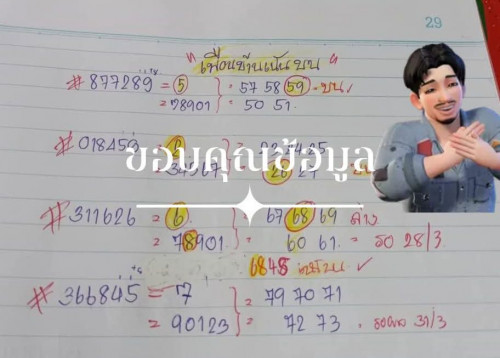 29
" เพื่อนบ้านเน้นบน "
#877289 = 5 = 57 58 59 = บน ✓
= 78901 = 50 51.
#018459 = 24 25
ขอบคุณข้อมูล
= 27
#311626 = 6. = 67 68 69 ล่าง
= 78901 = 60 61. = รอ 28/3
6848 ✓
#366845 = 7 = 79 70 71
= 90123 = 72 73 . 31/3